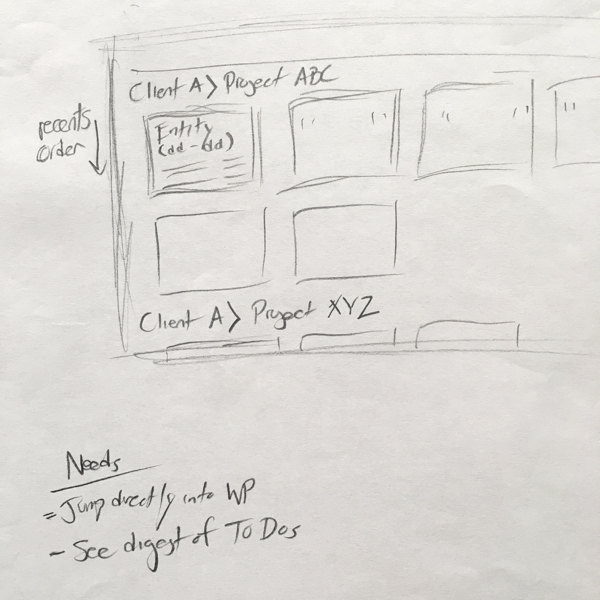 Client A > Project ABC
recents
order
Entity
(dd - dd)
" "
" "
"
Client A > Project XYZ
Needs
- Jump directly into WP
- See digest of To Dos